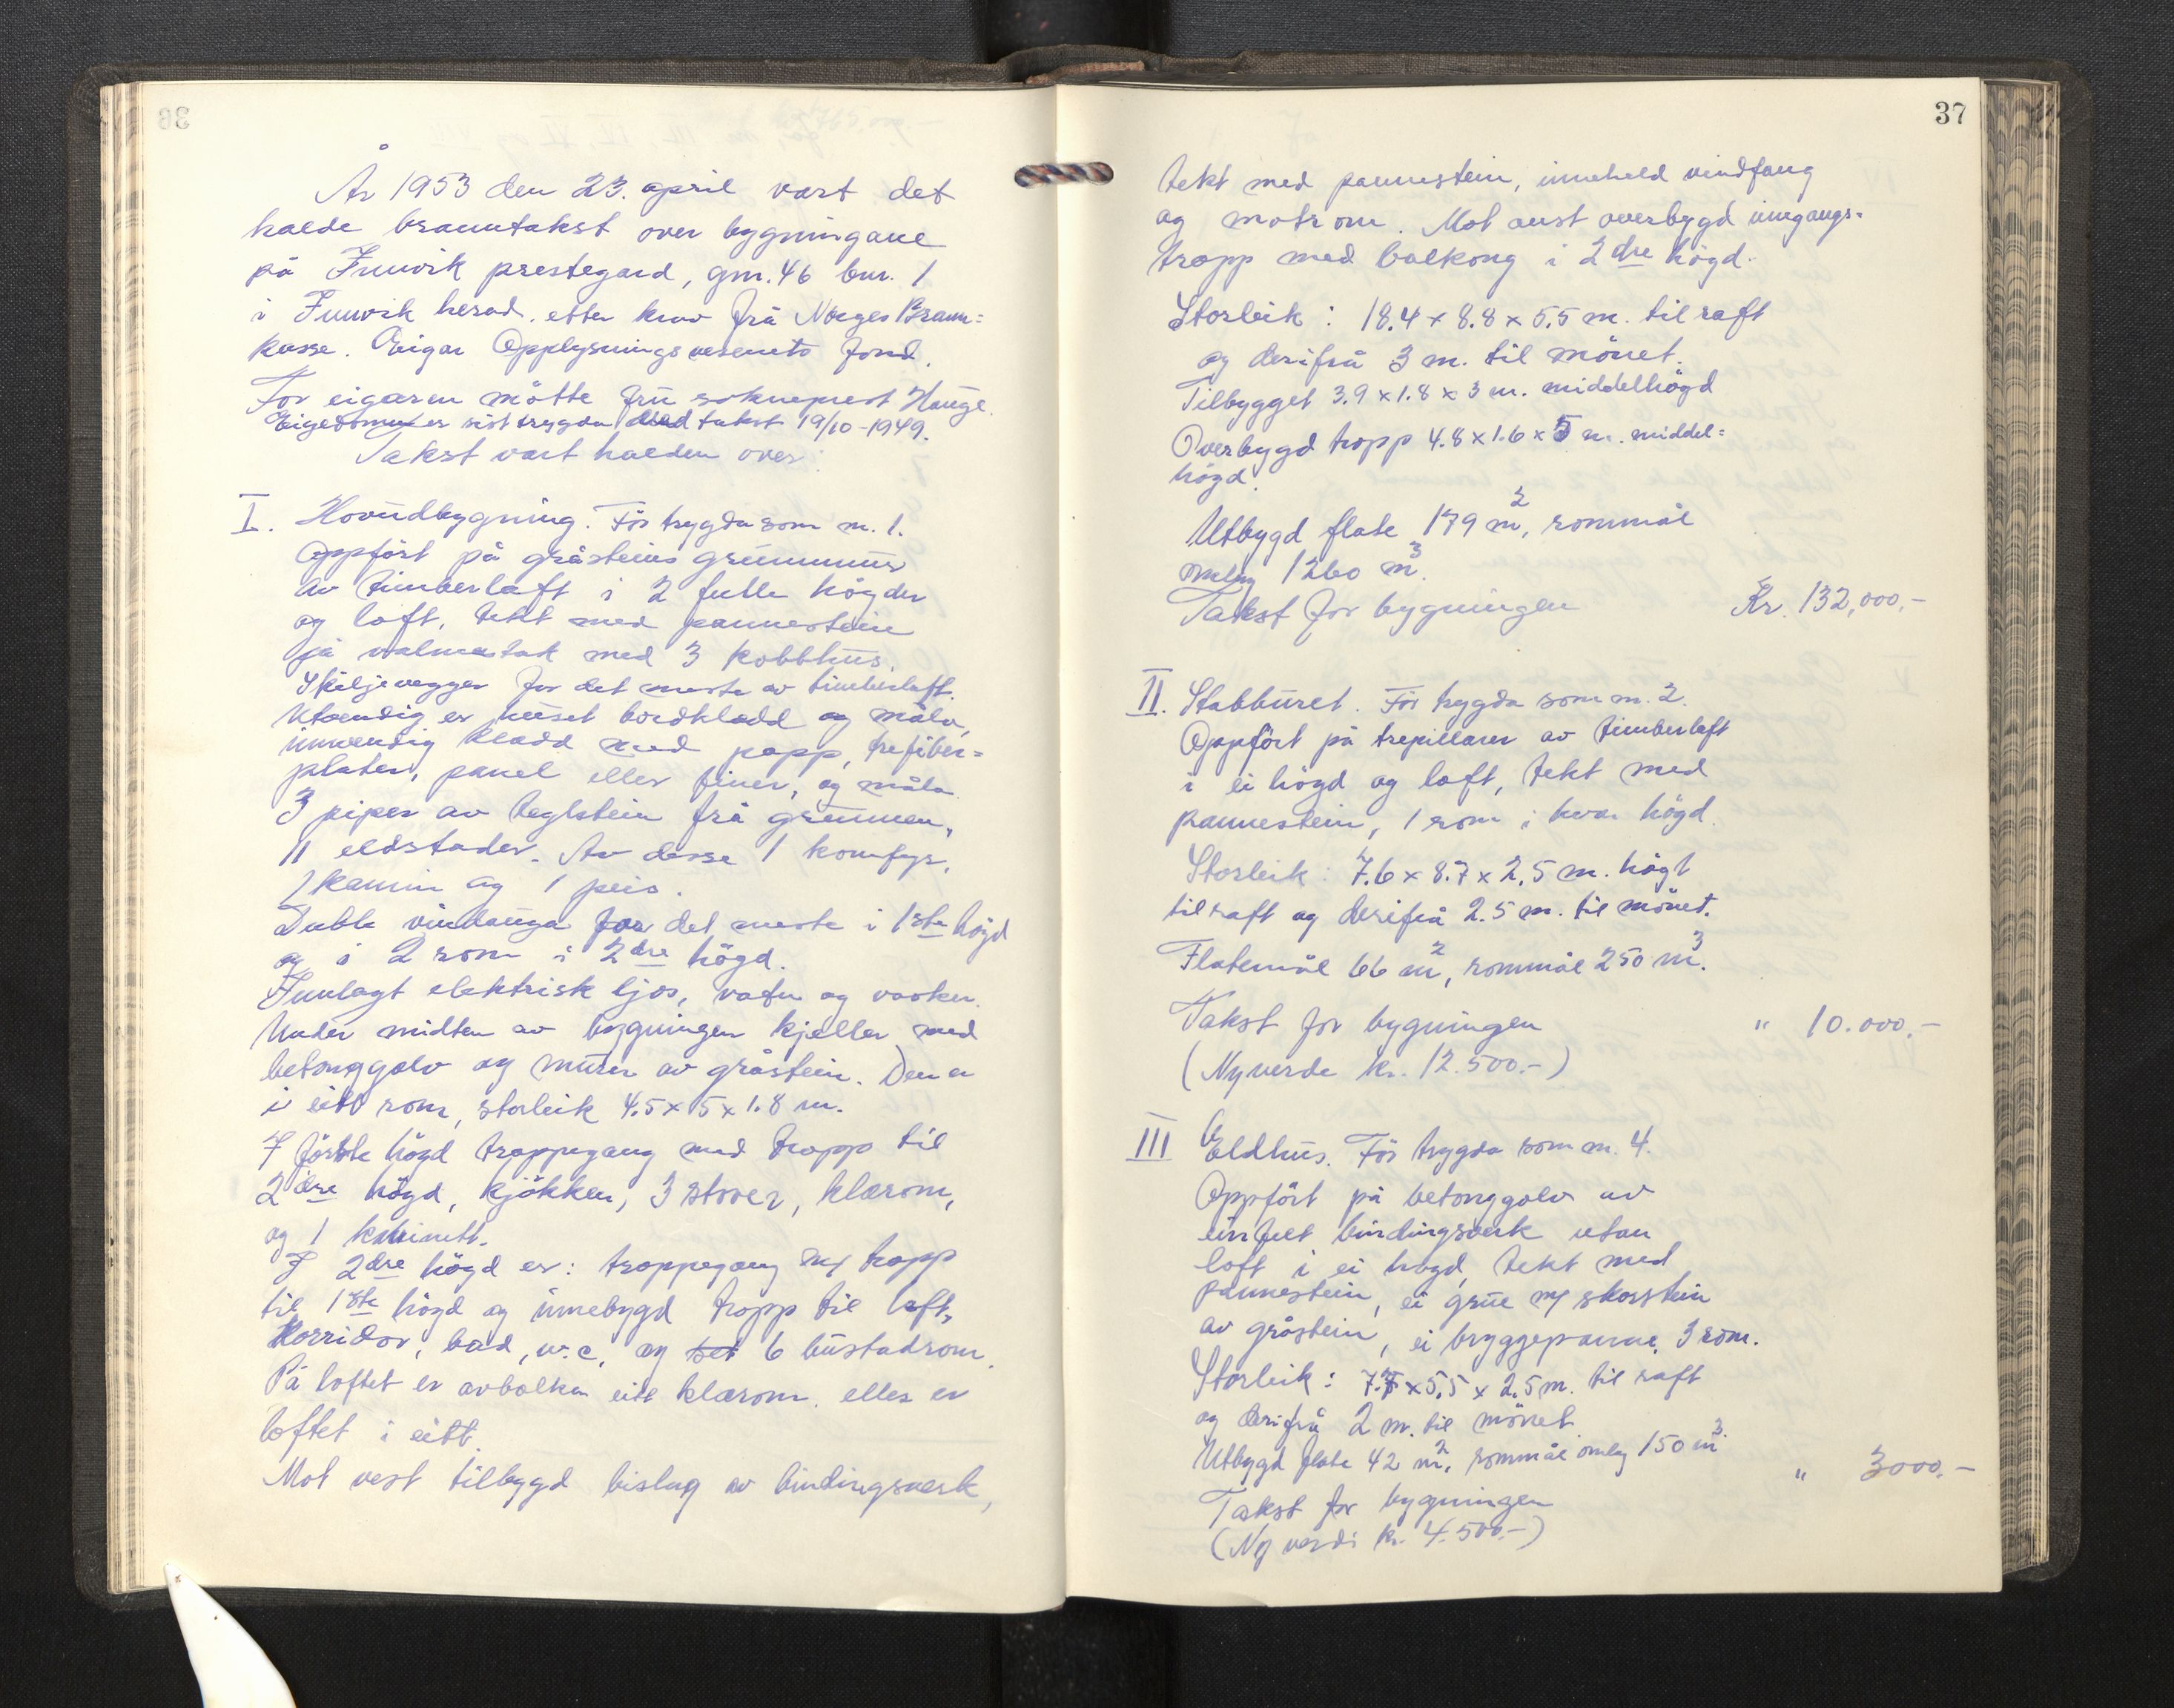 År 1953 den 23. april vart det
halde branntakst over bygningane
på Innvik prestegard, gnr. 46 bnr. 1
i Innvik herad. etter krav frå Norges Brann=
kasse. Eigar Opplysningsvesenets fond.
For eigaren møtte fru sokneprest Hauge.
Eigedomen er sist trygda med takst 19/10-1949.
Takst vart halden over:
I. Hovudbygning. Før trygda som nr. 1.
Oppført på gråsteins grunnmur
av timberlaft i 2 fulle høgder
og loft, tekt med pannestein
på valmatak med 3 kobbhus.
Skiljevegger for det meste av timberlaft.
Utvendig er huset bordkledd og måla,
innvendig kledd med papp, trefiber=
plater, panel eller finer, og måla
3 piper av teglstein frå grunnen,
11 eldstader. Av desse 1 komfyr,
1 kamin og 1 peis.
Duble vindauga for det meste i 1ste høgd
og i 2 rom i 2dre høgd.
Innlagt elektrisk ljos, vatn og vasker.
Under midten av bygningen kjeller med
betonggolv og murer av gråstein. Den er
i eitt rom, storleik 4.5 x 5 x 1.8 m.
I første høgd troppegang med tropp til
2dre høgd, kjøkken, 3 stover, klerom,
og 1 kabinett.
I 2dre høgd er: troppegang m/ tropp
til 1ste høgd og innebygd tropp til loft,
Korridor, bad, w.c. og 6 bustadrom.
På loftet er avbolka eitt klerom. elles er
loftet i eitt.
Mot vest tilbygd bislag av bindingsverk,
37
tekt med pannestein, inneheld vindfang
og matrom. Mot aust overbygd inngangs=
tropp med balkong i 2dre høgd.
Storleik: 18.4 x 8.8 x 5.5 m. til raft
og derifrå 3 m. til mønet.
Tilbygget 3.9 x 1.8 x 3 m. middelhøgd
Overbygd tropp 4.8 x 1.6 x 5 m. middel=
høgd.
Utbygd flate 179 m2, rommål
omlag 1260 m3.
Takst for bygningen Kr. 132,000,-
II. Stabburet. Før trygda som nr. 2.
Oppført på trepillarer av timberlaft
i ei høgd og loft, tekt med
pannestein, 1 rom i kvar høgd.
Storleik: 7.6 x 8.7 x 2.5 m. høgt
til raft og derifrå 2.5 m. til mønet.
Flatemål 66 m2, rommål 250 m3.
Takst for bygningen " 10.000,-
(Nyverde kr. 12.500.-)
III Eldhus. Før trygda som nr. 4.
Oppført på betonggolv av
einfelt bindingsverk utan
loft i ei høgd, tekt med
pannestein, ei grue m/ skorstein
av gråstein, ei bryggepanne, 3 rom.
Storleik: 7.7 x 5.5 x 2.5 m. til raft
og derifrå 2 m. til mønet.
Utbygd flate 42 m2, rommål omlag 150 m3.
Takst for bygningen " 3000,-
(Ny verdi kr. 4.500.-)